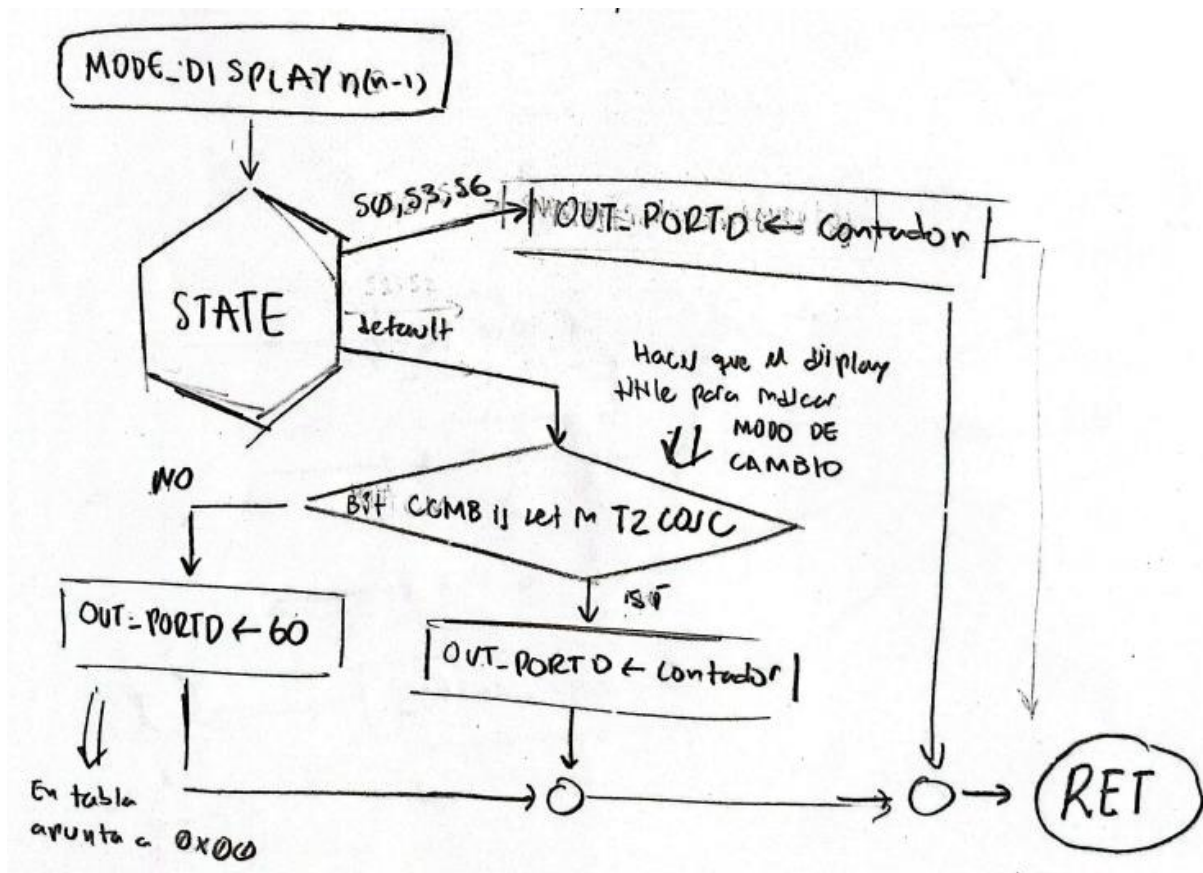 MODE_DISPLAY n(n-1)
S0, S3, S6
OUT_PORTD ← Contador
STATE
default
Hacer que el display
titile para
MODO DE
CAMBIO
NO
Bit COMB is set in
OUT_PORTD ← 60
OUT_PORTD ← Contador
En tabla
apunta a 0x00
RET